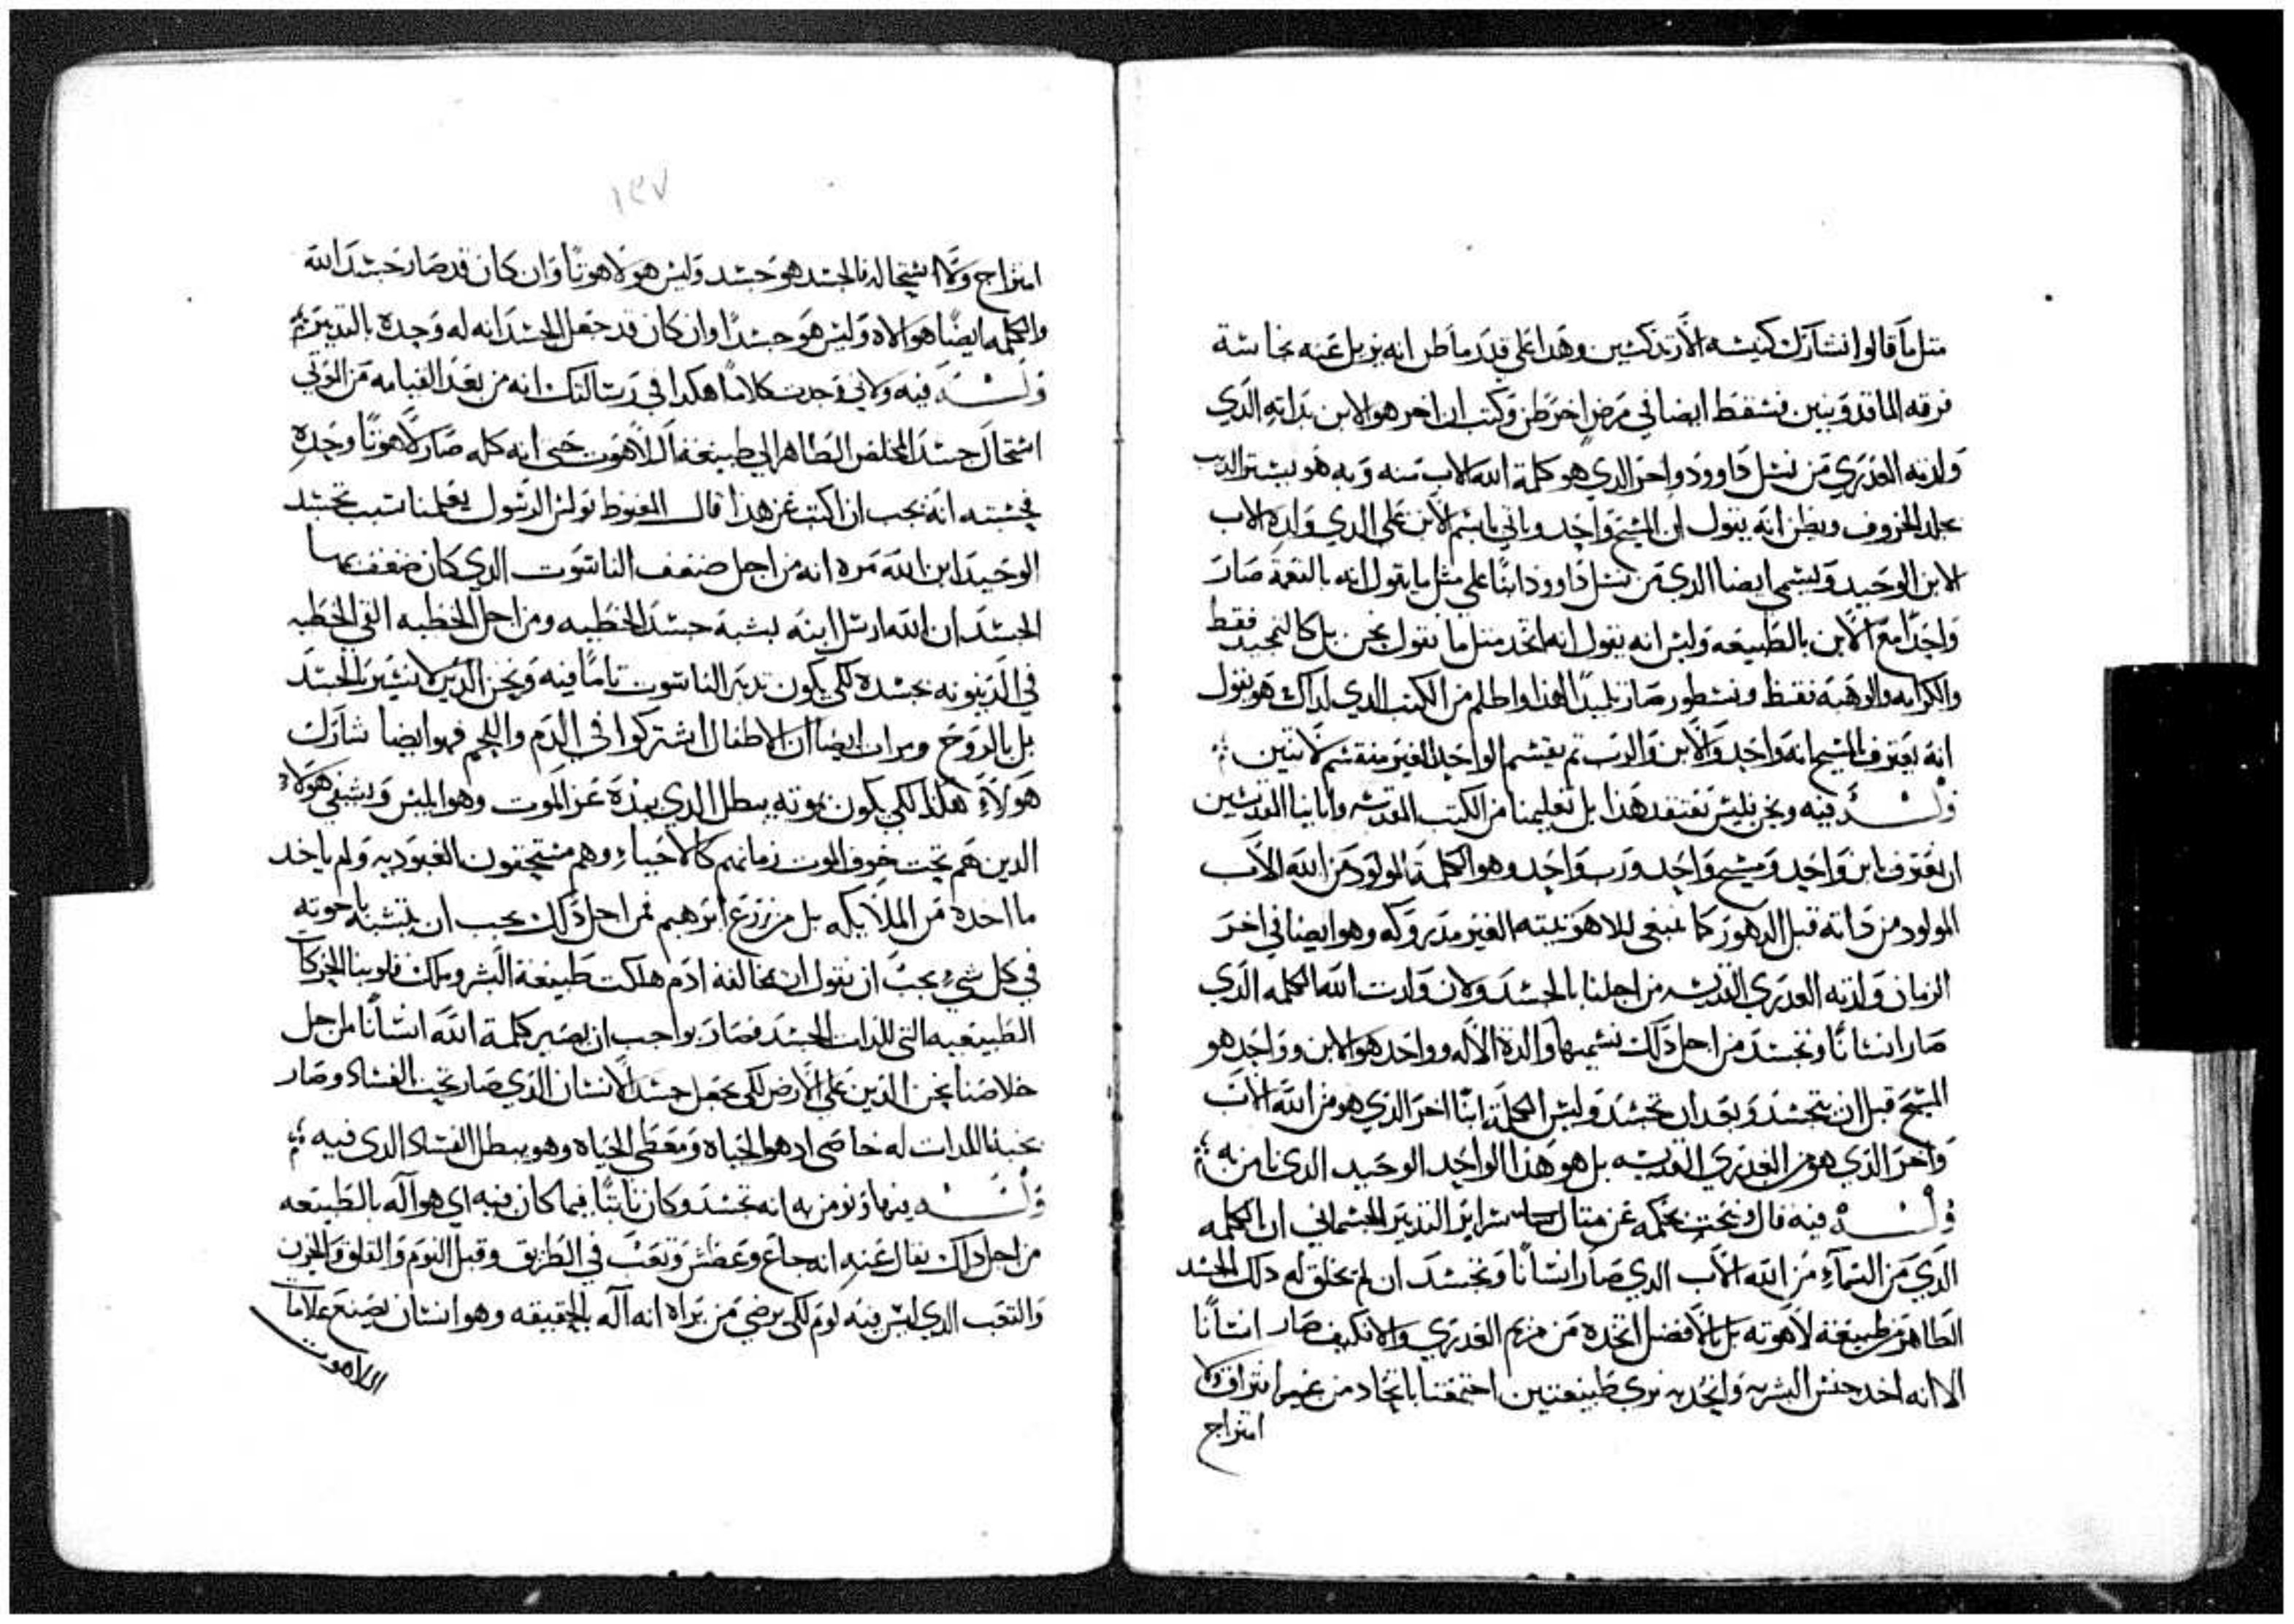 مثل ما قالوا انشارك كنيسه الارتدكسين وهدا على قدر ما ظن انه يزيل عنه نجاسة
فرقه الماقدونيين فسقط ايضا في مرض اخر ظن وكتب ان اخر هو الابن بداته الدي
ولدته العدرى من نسل داوود واخر الدي هو كلمة الله الاب منه وبه هو يستر الدب
بجلد الخروف ويظن انه يقول ان المسيح واحد وياتي باسم الابن على الدي ولده الاب
الابن الوحيد ويسمى ايضا الدي من نسل داوود ابنا على مثل ما يقول انه بالنعمة صار
واحدا مع الابن بالطبيعه وليس انه يقول انه اتحد متل ما نقول نحن بل كالتمجيد فقط
والكرامه والوهبة فقط ونسطور صار تلميدا لهدا واظلم من الكتب الدي لداك هو يقول
انه يعترف بالمسيح انه واحد والابن والرب تم يقسم الواحد الغير منقسم لاتنين
وله فيه ونحن فليس نعتقد هدا بل تعليمنا من الكتب المقدسه وابايينا القديسين
ان نعترف بابن واحد ومسيح واحد ورب واحد وهو الكلمة المولود من الله الاب
المولود من داته قبل الدهور كما ينبغي للاهوتيته الغير مدروكه وهو ايضا في اخر
الزمان ولدته العدرى القديسه من اجلنا بالجسد ولان ولدت الله الكلمه الدي
صار انسانا وتجسد من اجل دلك نسميها والدة الاله وواحد هو الابن وواحد هو
المسيح قبل ان يتجسد وبعد ان تجسد وليس الكلمة ابنا اخر الدي هو من الله الاب
واخر الدي هو من العدرى القديسه بل هو هدا الواحد الوحيد الدي نامن به
وله فيه قال ونحت بحكمه عن متال سراير التدبير الجسماني ان الكلمه
الدي من السماء من الله الاب الدي صار انسانا وتجسد ان لم يخلق له دلك الجسد
الطاهر من طبيعة لاهوته بل بالافضل اتخده من مريم العدرى والا فكيف صار انسانا
الا انه اخد جنس البشريه واتحد به نرى طبيعتين اجتمعتا باتحاد من غير افتراق ولا
امتزاج
١٣٧
امتزاج ولا استحاله فالجسد هو جسد وليس هو لاهوتا وان كان قد صار جسد الله
والكلمه ايضا هو الاه وليس هو جسدا وان كان قد جعل الجسد انه له وحده بالتدبير
وله فيه ولاني وجدت كلاما هكدا في رسالتك انه من بعد القيامه من الموتى
استحال جسد المخلص الطاهر الى طبيعة اللاهوت حتى انه كله صار لاهوتا وحده
فحسبته انه يجب ان اكتب عن هدا قال المغبوط بولس الرسول يعلمنا سبب تجسد
الوحيد ابن الله مره انه من اجل ضعف الناسوت الدي كان ضعف بها
الجسد ان الله ارسل ابنه بشبه جسد الخطيه ومن اجل الخطيه القي الخطيه
في الدينونه بجسده لكي يكون تدبير الناسوت تاما فيه ونحن الدين لا نسير بالجسد
بل بالروح ومرات ايضا ان الاطفال اشتركوا في الدم واللحم فهو ايضا شارك
هولاء هكدا لكي يكون بموته يبطل الدي بيده عز الموت وهو ابليس ويشفي هولاء
الدين هم تحت خوف الموت زمانهم كالاحياء وهم مستحقون العبوديه ولم ياخد
ما اخده من الملايكه بل من زرع ابرهيم فمن اجل دلك يجب ان يتشبه باخوته
في كل شيء يجب ان نقول ان مخالفة ادم هلكت طبيعة البشر وملك قلوبنا الحركا
الطبيعيه التي للدات الجسد فصار بواجب ان يصير كلمة الله انسانا من اجل
خلاصنا نحن الدين على الارض لكي يجعل جسد الانسان الدي صار تحت الفساد وصار
بمحبة اللدات له خاصي اد هو الحياه ومعطي الحياه وهو يبطل الفساد الدي فيه
وله فيه نومن به انه تجسد وكان تابتا فيما كان فيه اي هو اله بالطبيعه
من اجل دلك يقال عنه انه جاع وعطش وتعب في الطريق وقبل النوم والقلق والحزن
والتعب الدي ليس فيه لوم لكي يرضي من يراه انه اله بالحقيقه وهو انسان يصنع علامات
اللاهوت